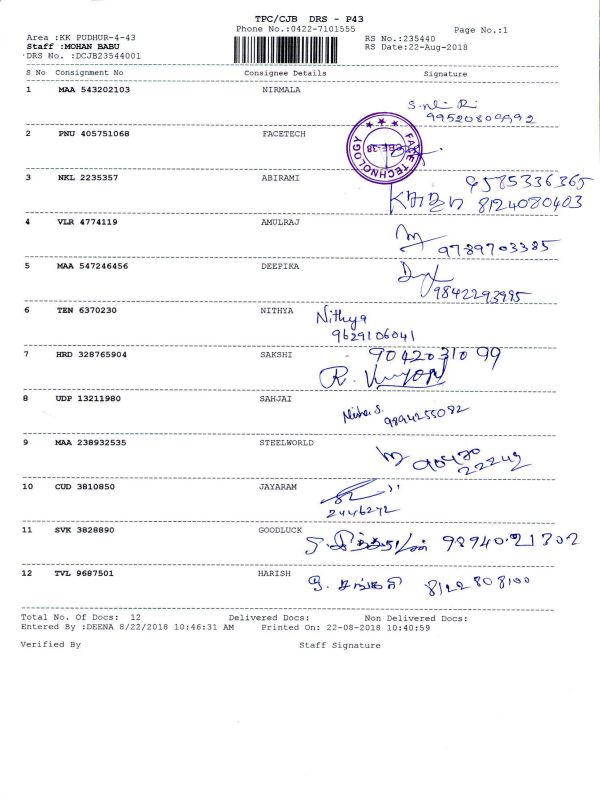 TPC/CJB DRS - P43
Phone No.:0422-7101555
Page No.:1
Area :KK PUDHUR-4-43
RS No.:235440
Staff :MOHAN BABU
RS Date:22-Aug-2018
DRS No. :DCJB23544001
S No Consignment No Consignee Details Signature
1 MAA 543202103 NIRMALA
2 PNU 405751068 FACETECH
FACE TECHNOLOGY
CBE-38
3 NKL 2235357 ABIRAMI
9585336365
8124080403
4 VLR 4774119 AMULRAJ
9789703385
5 MAA 547246456 DEEPIKA
9842293995
6 TEN 6370230 NITHYA
Nithya
9629106041
7 HRD 328765904 SAKSHI
9042031099
8 UDP 13211980 SAHJAI
9894255082
9 MAA 238932535 STEELWORLD
10 CUD 3810850 JAYARAM
2446272
11 SVK 3828890 GOODLUCK
9894021302
12 TVL 9687501 HARISH
8122808100
Total No. Of Docs: 12 Delivered Docs: Non Delivered Docs:
Entered By :DEENA 8/22/2018 10:46:31 AM Printed On: 22-08-2018 10:40:59
Verified By Staff Signature